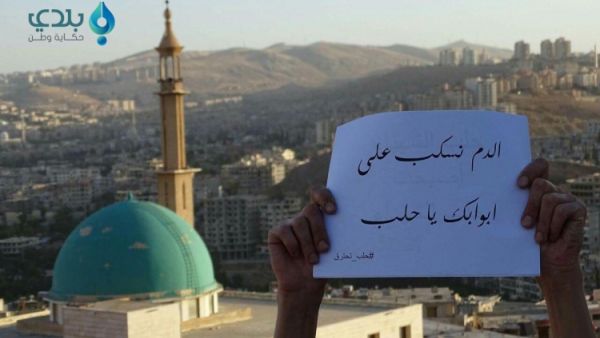 بلدي
حكاية وطن
الدم نسكب على
ابوابك يا حلب
#حلب_تحترق